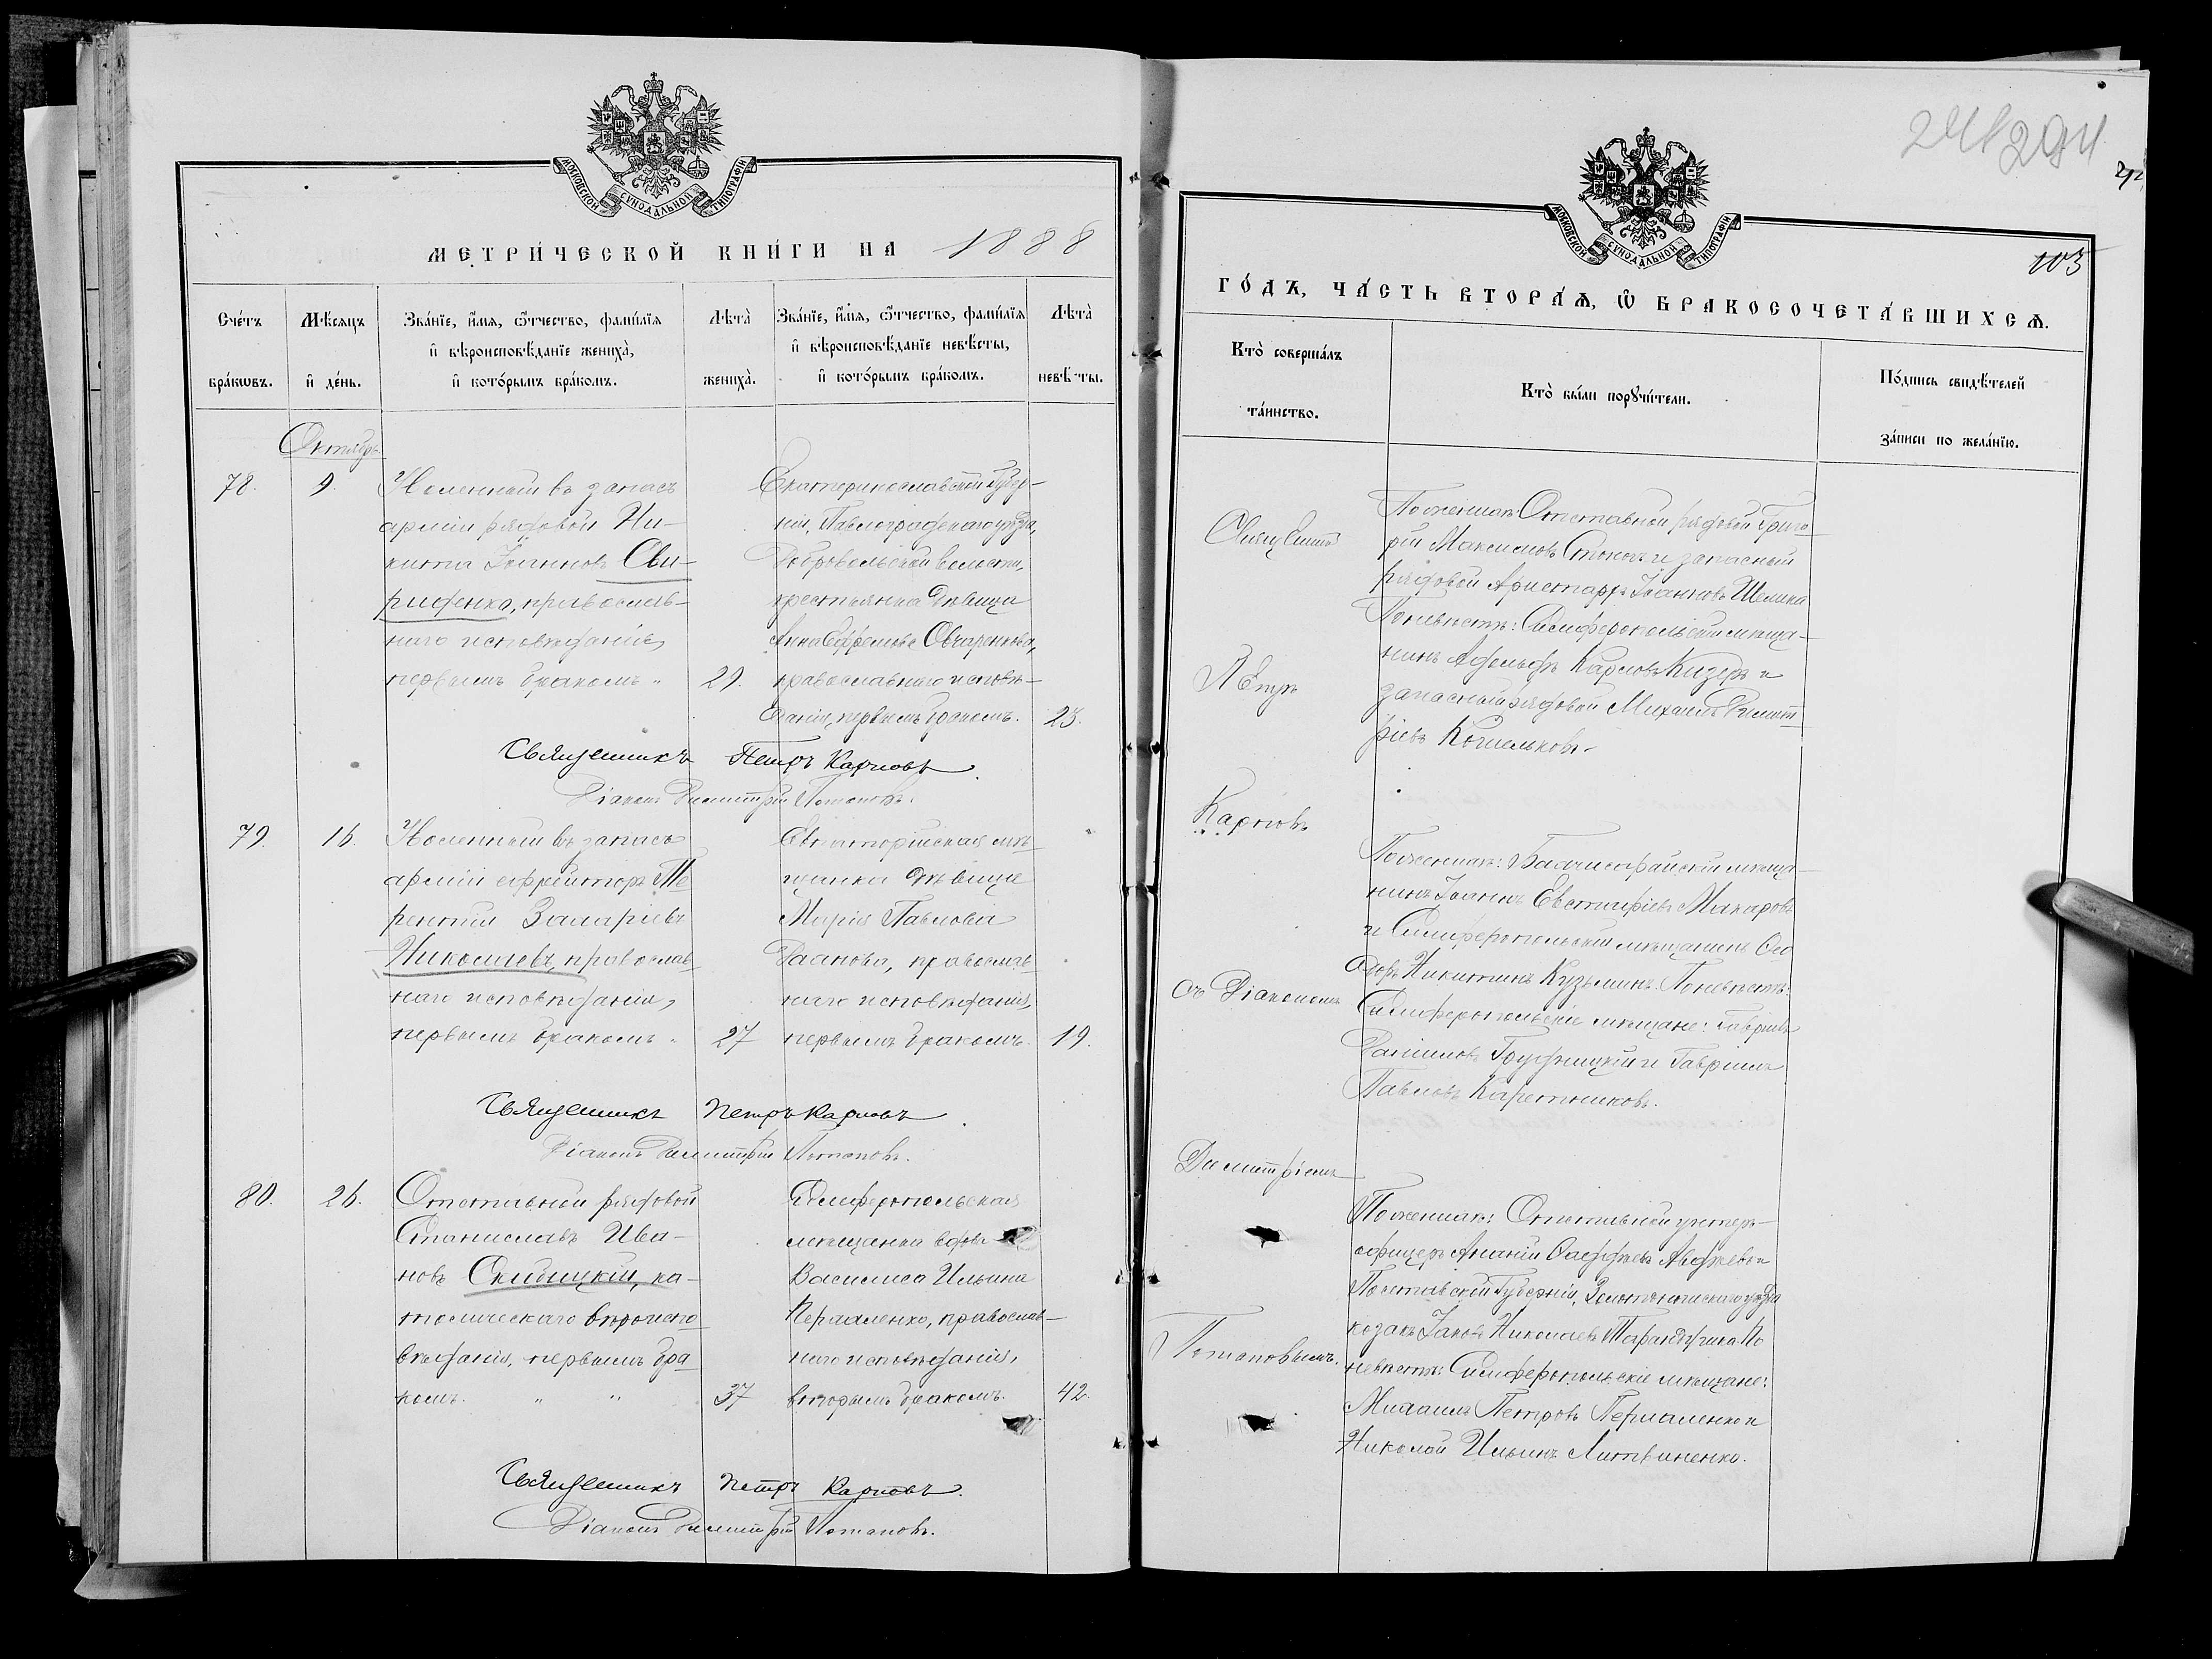 МОСКОВСКОЙ СѴНОДАЛЬНОЙ ТИПОГРАФІИ
МЕТРИ́ЧЕСКОЙ КНИ́ГИ НА 1888
Сче́тъ бра́кѡвъ.
Мѣ́сяцъ и҆ де́нь.
Зва́нїе, и҆́мѧ, ѻ҆́тчество, фами́лїѧ
и҆ вѣроисповѣ́данїе жениха̀,
и҆ кото́рымъ бра́комъ.
Лѣта̀ жениха̀.
Зва́нїе, и҆́мѧ, ѻ҆́тчество, фами́лїѧ
и҆ вѣроисповѣ́данїе невѣ́сты,
и҆ кото́рымъ бра́комъ.
Лѣта̀ невѣ́сты.
Октябрь
78.
9.
въ запасъ
арміи рядовой Ни-
кита Іоанновъ Сви-
риденко, православ-
наго исповѣданія,
первымъ бракомъ "
29.
Екатеринославской Губер-
ніи, Павлоградскаго уѣзда,
Добровольской волости,
крестьянка дѣвица
Анна Ефремова Овчаренкова,
православнаго исповѣ-
данія, первымъ бракомъ.
23.
Священникъ Петръ Карповъ
Діаконъ Димитрій Потаповъ.
79.
16.
въ запасъ
арміи ефрейторъ Те
рентій Захаріевъ
Николаевъ, православ
наго исповѣданія,
первымъ бракомъ "
27
Евпаторійская мѣ
щанка дѣвица
Марія Павлова
православ
наго исповѣданія,
первымъ бракомъ.
19.
Священникъ Петръ Карповъ
Діаконъ Димитрій Потаповъ.
80.
26.
Отставной рядовой
Станиславъ Ива-
новъ Скибицкій, ка-
толическаго вѣроиспо
вѣданія, первымъ бра
комъ. " "
37
Симферопольская
мѣщанка вдова
Василиса Ильина
православ-
наго исповѣданія,
вторымъ бракомъ.
42.
Священникъ Петръ Карповъ.
Діаконъ Димитрій Потаповъ.
241 294
103
МОСКОВСКОЙ СѴНОДАЛЬНОЙ ТИПОГРАФІИ
ГО́ДЪ, ЧА́СТЬ ВТОРА́Ѧ, Ѽ БРАКОСОЧЕТА́ВШИХСѦ.
Кто̀ соверша́лъ
та́инство.
Кто̀ бы́ли порꙋчи́тели.
По́дпись свидѣ́телей
за́писи по жела́нїю.
Священникъ
Петръ
Карповъ
съ Діакономъ
Димитріемъ
Потаповымъ.
По женихѣ: Отставной рядовой Григо-
рій Максимовъ и запасный
рядовой Аристархъ Іоанновъ
По невѣстѣ: Симферопольскій мѣща-
нинъ Адольфъ Карловъ Кизеръ и
запасный рядовой Михаилъ Димит
ріевъ Кошельковъ.
По женихѣ: Бахчисарайскій мѣща-
нинъ Іоаннъ Евстафіевъ Макаровъ
и Симферопольскій мѣщанинъ Ѳео
доръ Никитинъ Кузьминъ. По невѣстѣ:
Симферопольскіе мѣщане: Гавріилъ
Даниловъ и Гавріилъ
Павловъ Каретниковъ.
По женихѣ: Отставной унтеръ-
офицеръ Ананій Авдѣевъ и
Полтавской Губерніи, уѣзда
козакъ Іаковъ Николаевъ По
невѣстѣ: Симферопольскіе мѣщане:
Михаилъ Петровъ и
Николай Ильинъ Литвиненко.